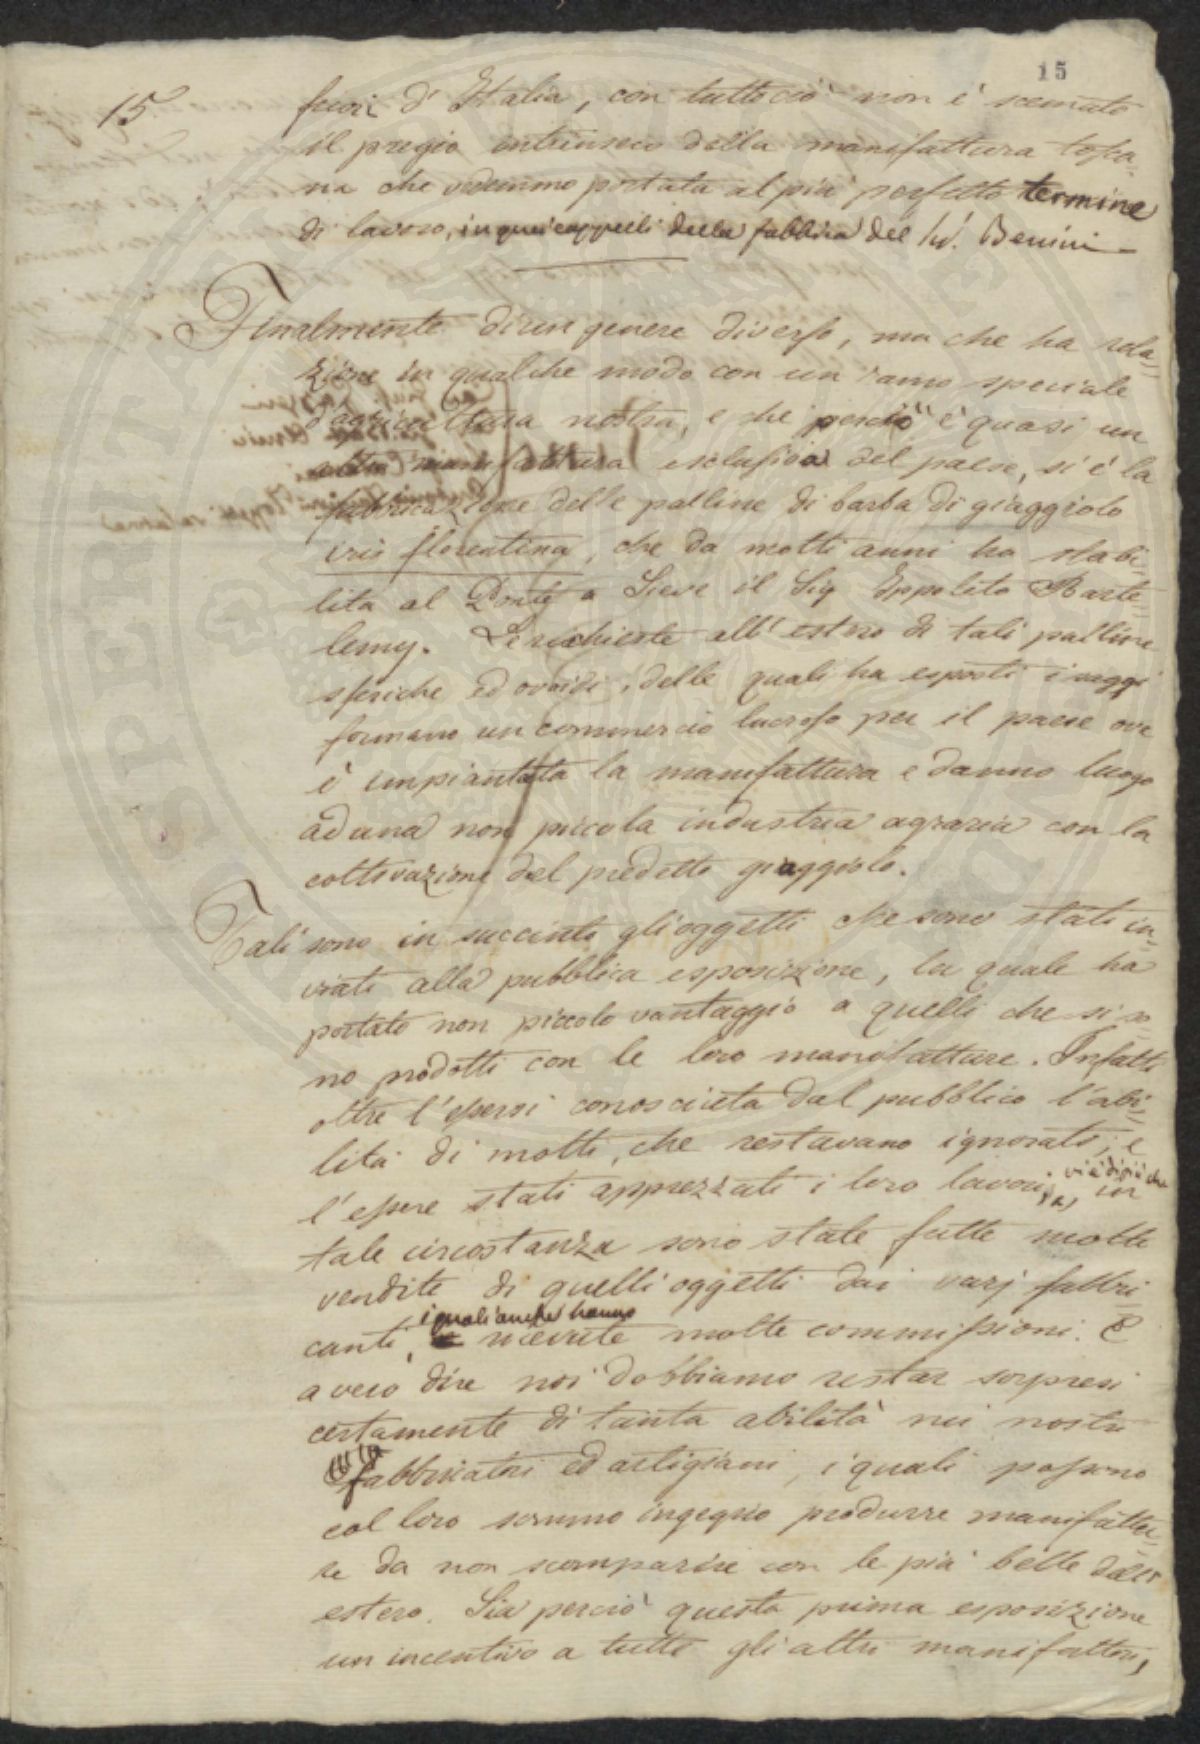 15
15
fuori d' Italia, con tutto ciò non è scemato
il pregio intrinseco della manifattura tosca-
na che vedemmo portata al più perfetto termine
di lavoro, in quei cappelli della fabbrica del Sig. Benini —
Finalmente di un genere diverso, ma che ha rela-
zione in qualche modo con un ramo speciale
d'agricoltura nostra, e che perciò è quasi un
altra manifattura esclusiva del paese, si è la
fabbricazione delle palline di barba di giaggiolo
iris florentina, che da molti anni ha stabi-
lita al Ponte a Sieve il Sig Ippolito Barte-
lemy. Le richieste all' estero di tali palline
sferiche ed ovoidi, delle quali ha esposti i saggi
formano un commercio lucroso per il paese ove
è impiantata la manifattura e danno luogo
ad una non piccola industria agraria con la
coltivazione del predetto giaggiolo.
Tali sono in succinto gli oggetti che sono stati in-
viati alla pubblica esposizione, la quale ha
portato non piccolo vantaggio a quelli che si so-
no prodotti con le loro manifatture. Infatti
oltre l'essersi conosciuta dal pubblico l'abi-
lità di molti, che restavano ignorati, e
l'essere stati apprezzati i loro lavori, vi è di più che in
tale circostanza sono state fatte molte
vendite di quelli oggetti dai varj fabbri-
canti, i quali anche hanno ricevute molte commissioni. E
a vero dire noi dobbiamo restar sorpresi
certamente di tanta abilità nei nostri
fabbricatori ed artigiani, i quali possono
col loro sommo ingegno produrre manifattu-
re da non scomparire con le più belle dell'
estero. Sia perciò questa prima esposizione
un incentivo a tutti gli altri manifattori,